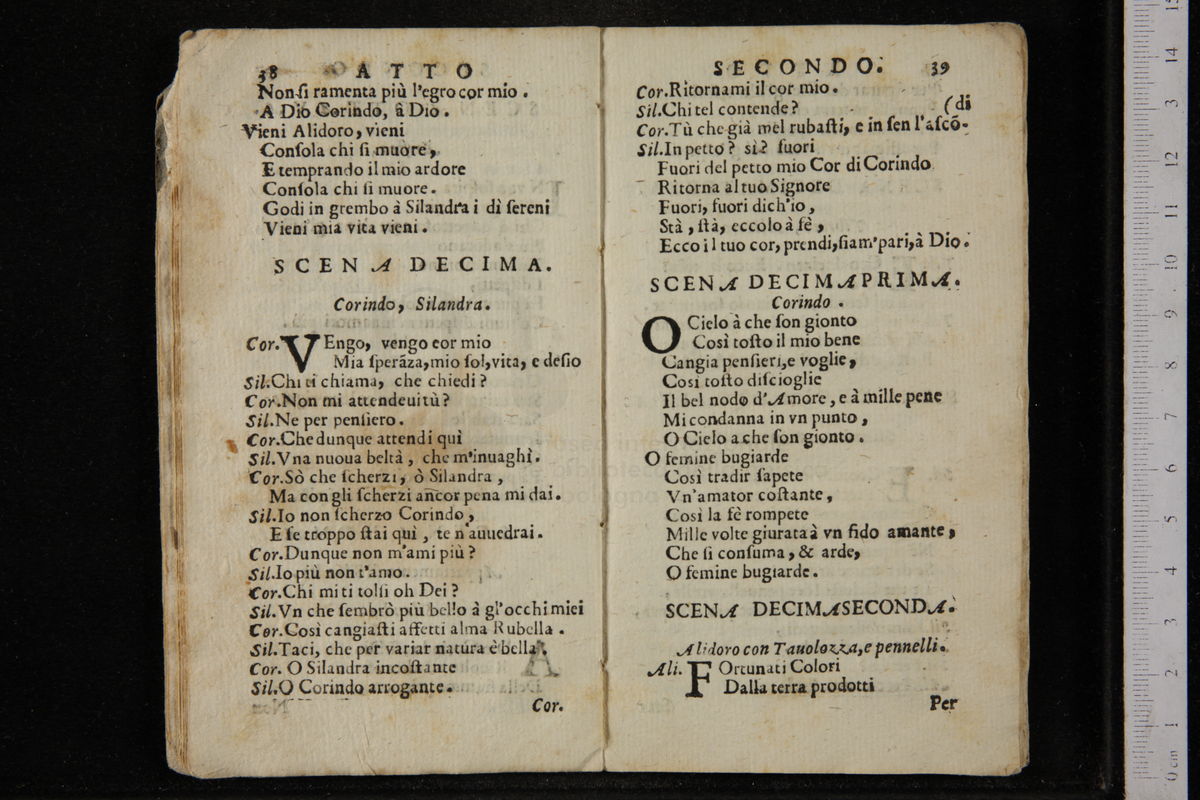 38 ATTO
Non ſi ramenta più l'egro cor mio.
A Dio Corindo, à Dio.
Vieni Alidoro, vieni
Conſola chi ſi muore,
E temprando il mio ardore
Conſola chi ſi muore.
Godi in grembo à Silandra i dì ſereni
Vieni mia vita vieni.
SCENA DECIMA.
Corindo, Silandra.
Cor. VEngo, vengo cor mio
Mia ſperãza, mio ſol, vita, e deſio
Sil. Chi ti chiama, che chiedi?
Cor. Non mi attendeui tù?
Sil. Ne per penſiero.
Cor. Che dunque attendi quì
Sil. Vna nuoua beltà, che m'inuaghì.
Cor. Sò che ſcherzi, ò Silandra,
Ma con gli ſcherzi ancor pena mi dai.
Sil. Io non ſcherzo Corindo,
E ſe troppo ſtai quì, te n'auuedrai.
Cor. Dunque non m'ami più?
Sil. Io più non t'amo.
Cor. Chi mi ti tolſi oh Dei?
Sil. Vn che ſembrò più bello à gl'occhi miei
Cor. Così cangiaſti affetti alma Rubella.
Sil. Taci, che per variar natura è bella.
Cor. O Silandra incoſtante
Sil. O Corindo arrogante.
Cor.
SECONDO. 39
Cor. Ritornami il cor mio.
Sil. Chi tel contende? (di
Cor. Tù che già mel rubaſti, e in ſen l'aſcõ-
Sil. In petto? sì? fuori
Fuori del petto mio Cor di Corindo
Ritorna al tuo Signore
Fuori, fuori dich'io,
Stà, ſtà, eccolo à fè,
Ecco il tuo cor, prendi, ſiam'pari, à Dio.
SCENA DECIMAPRIMA.
Corindo.
O Cielo à che ſon gionto
Così toſto il mio bene
Cangia penſieri, e voglie,
Così toſto diſcioglie
Il bel nodo d'Amore, e à mille pene
Mi condanna in vn punto,
O Cielo a che ſon gionto.
O femine bugiarde
Così tradir ſapete
Vn'amator coſtante,
Così la fè rompete
Mille volte giurata à vn fido amante,
Che ſi conſuma, & arde,
O femine bugiarde.
SCENA DECIMASECONDA.
Alidoro con Tauolozza, e pennelli.
Ali. FOrtunati Colori
Dalla terra prodotti
Per